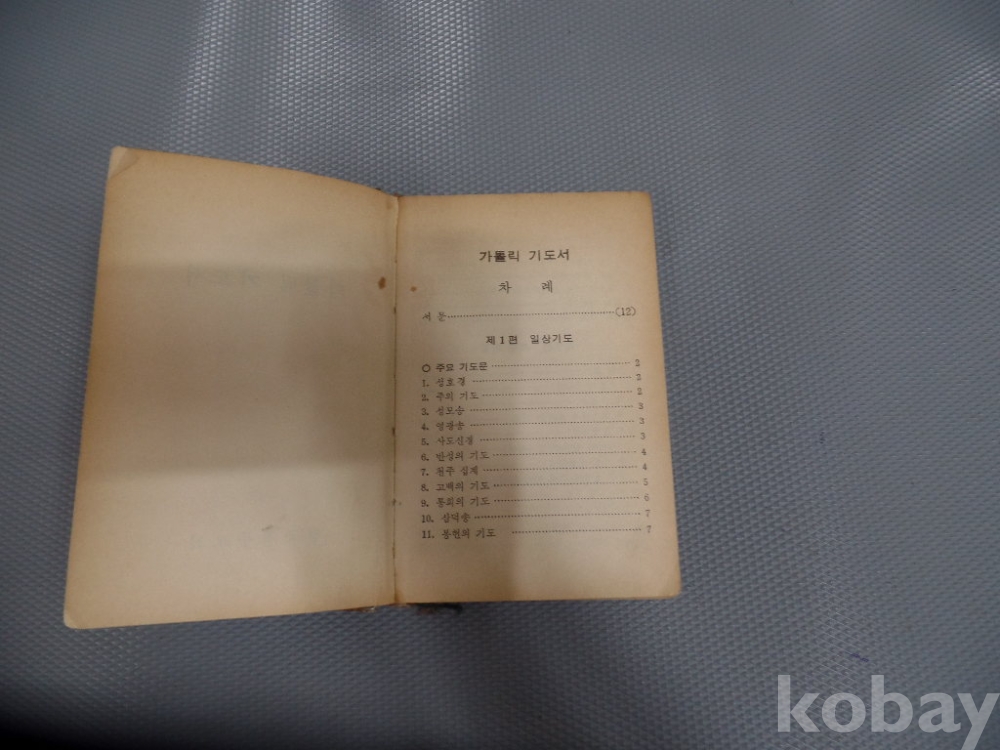 가톨릭 기도서
차 례
서 문 (12)
제1편 일상기도
○ 주요 기도문 2
1. 성호경 2
2. 주의 기도 2
3. 성모송 3
4. 영광송 3
5. 사도신경 3
6. 반성의 기도 4
7. 천주 십계 4
8. 고백의 기도 5
9. 통회의 기도 6
10. 삼덕송 7
11. 봉헌의 기도 7
kobay